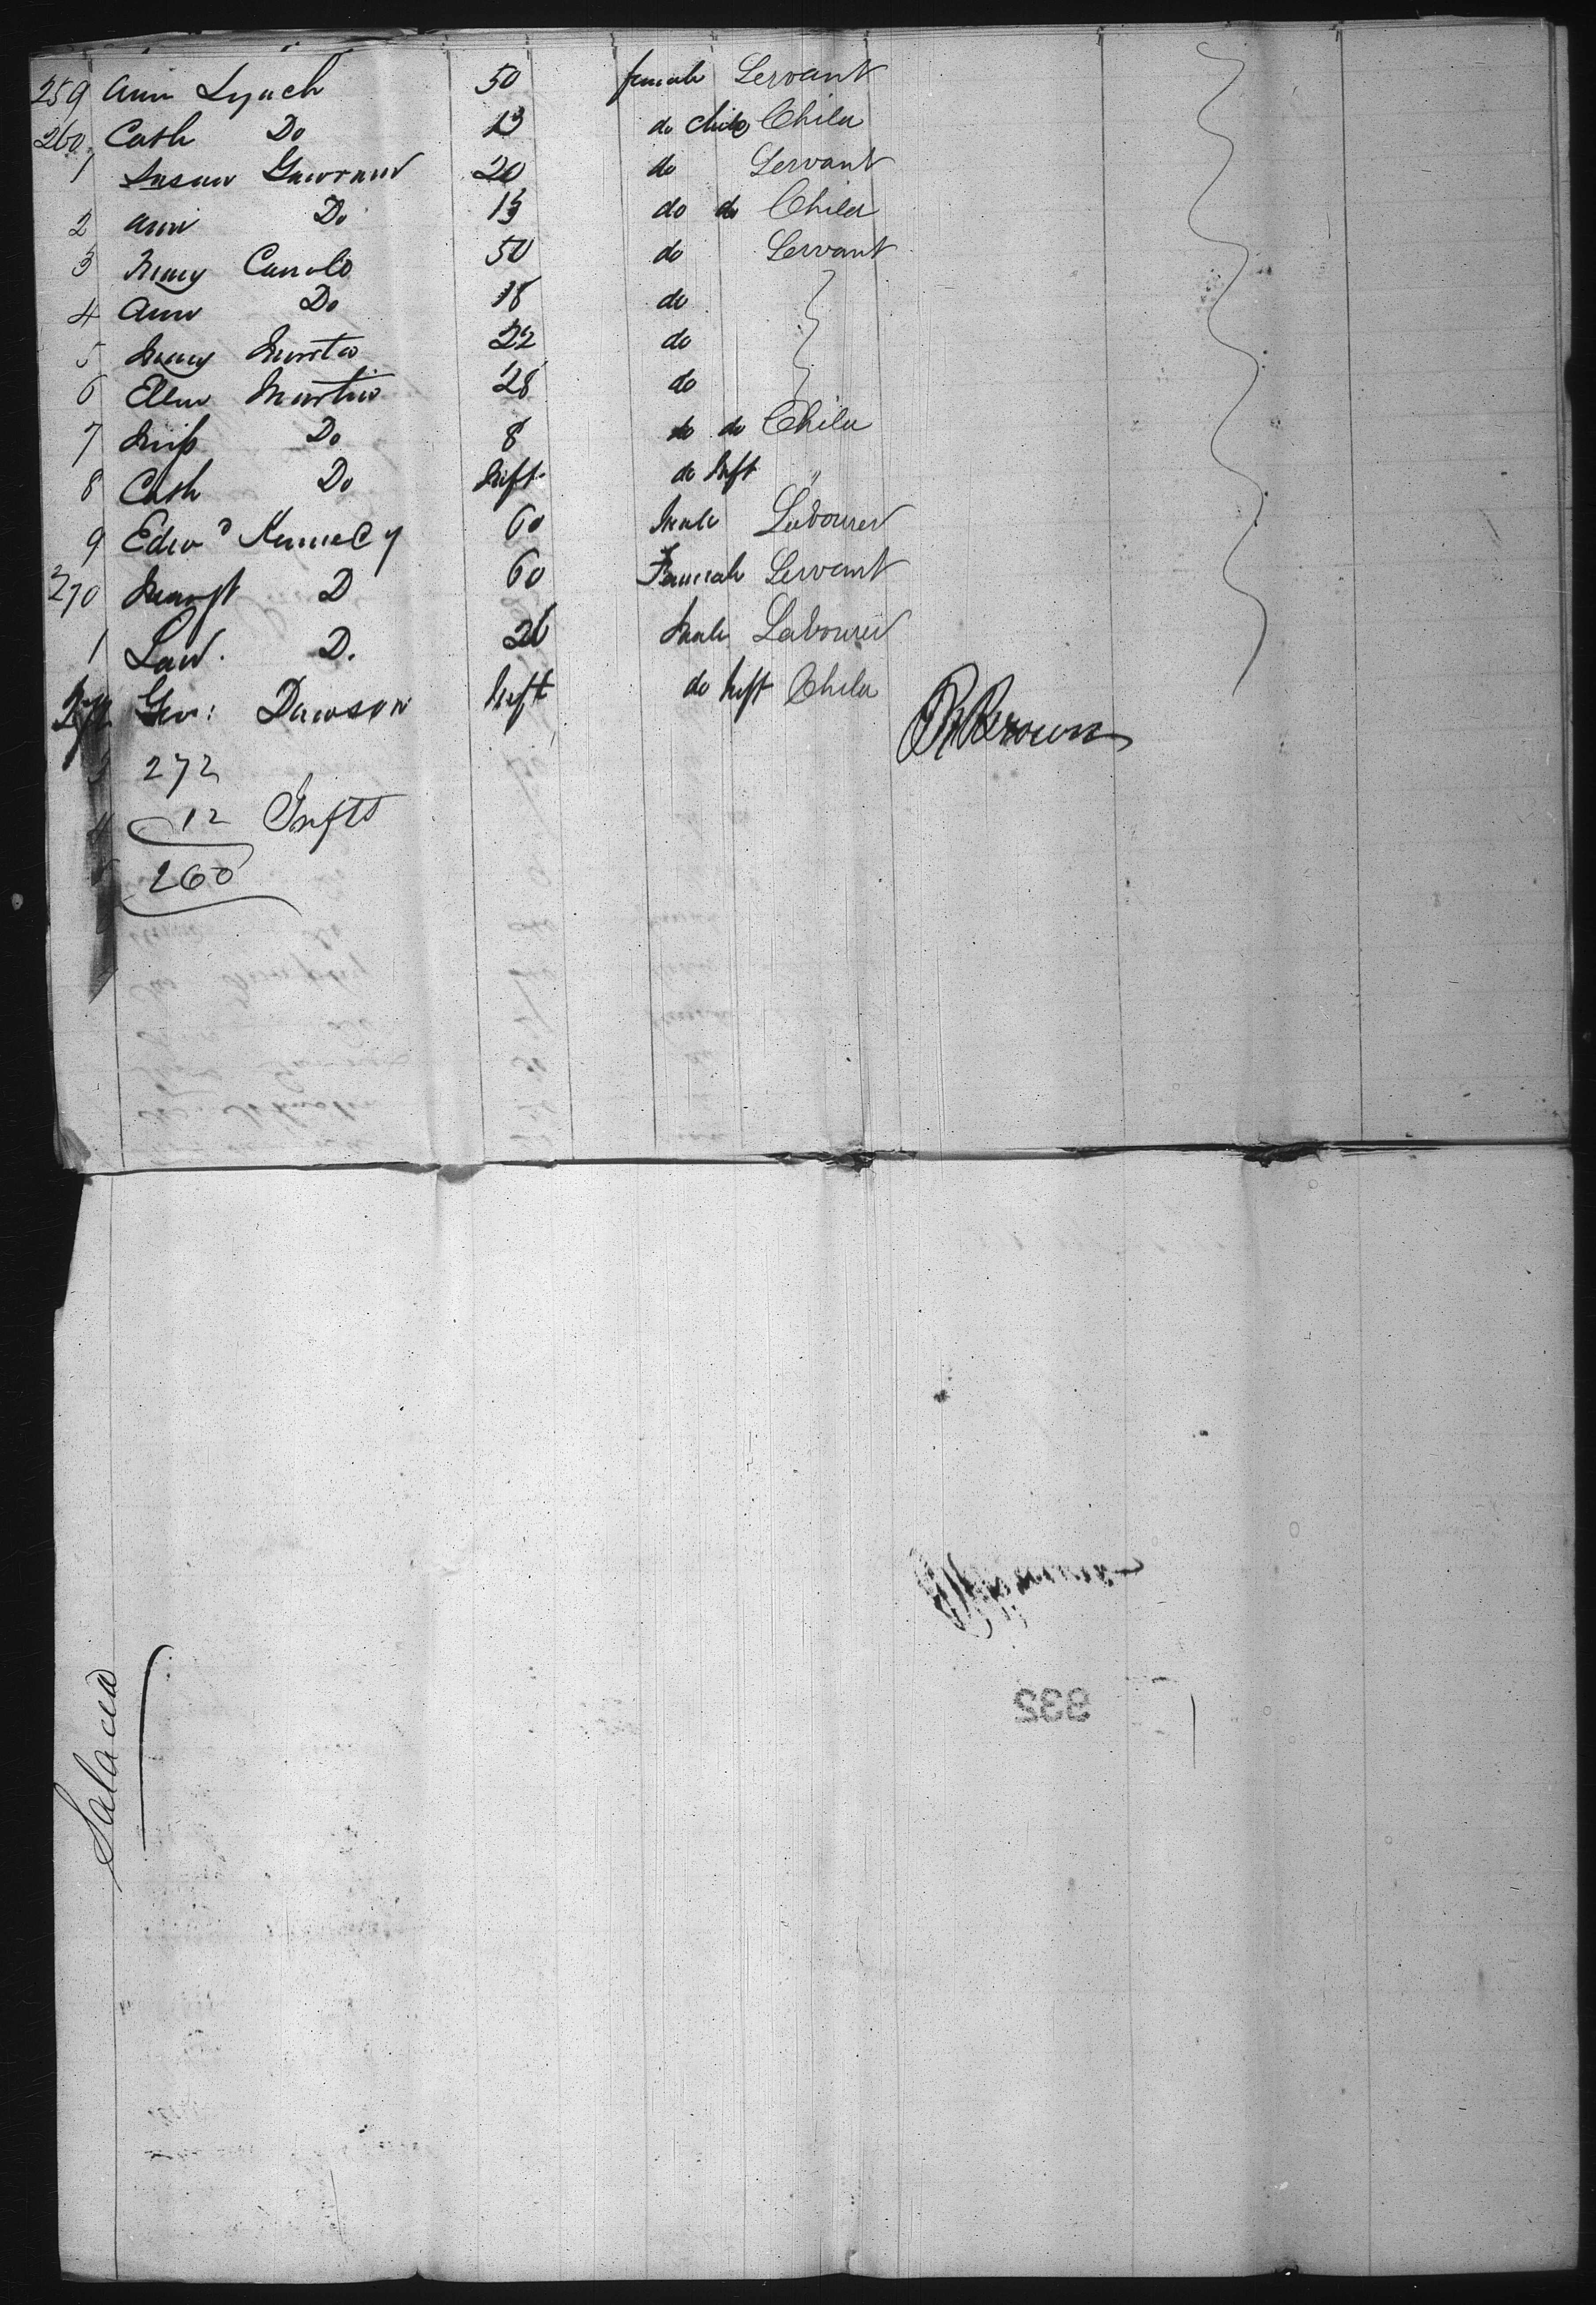 259 Ann Lynch 50 female Servant
260 Cath Do 13 do child Child
1 Susan 20 do Servant
2 Ann Do 15 do do Child
3 Mary 50 do Servant
4 Ann Do 18 do
5 Mary 22 do
6 Ellen Martin 28 do
7 Do 8 do do Child
8 Cath Do Inft. do Inft "
9 Edwd Kennedy 60 Male Labourer
270 Margt D 60 Female Servant
1 Law. D. 26 Male Labourer
272 Geo: Dawson Inft do Inft Child
Brown
3 272
4 12 Infts
5 260
Salacia
932